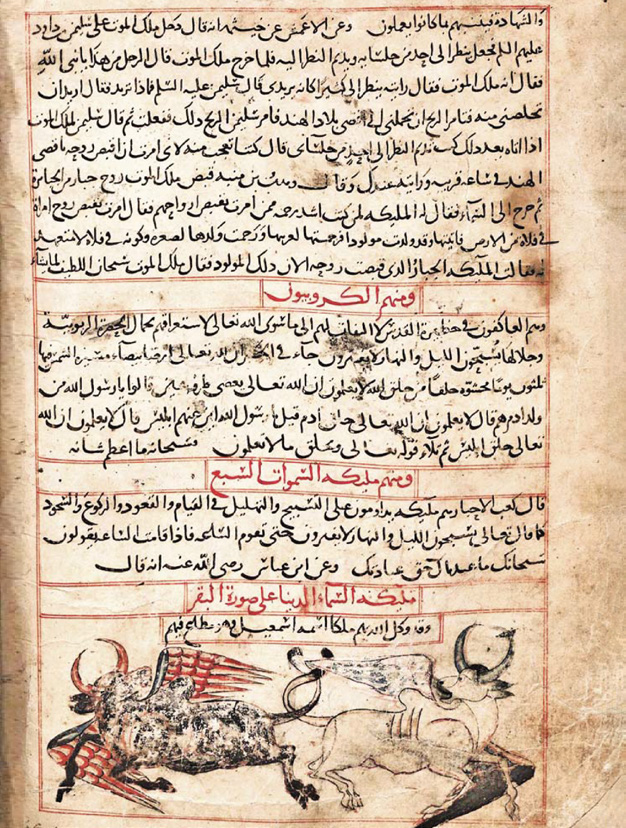 والشهادة فينبئهم بما كانوا يعملون وعن الاعمش عن خيثمة انه قال دخل ملك الموت على سليمن بن داود
عليهم السلم فجعل ينظر الى احد من جلسائه ويديم النظر اليه فلما خرج ملك الموت قال الرجل من هذا يا نبي الله
فقال انه ملك الموت فقال رايته ينظر الى كثيرا كانه يريدني قال سليمن عليه السلم فاذا تريد فقال اريد ان
تخلصني منه فتامر الريح ان تحملني الى اقصى بلاد الهند فامر سليمن الريح ذلك ففعلت ثم قال سليمن لملك الموت
اذا اتاه بعد ذلك كنت تديم النظر الى احد من جلسائي قال كنت اتعجب منه لاني امرت ان اقبض روحه باقصى
الهند في ساعة قريبة ورايته عندك وقال وهب بن منبه قبض ملك الموت روح جبار من الجبابرة
ثم عرج الى السماء فقال له المليكه لمن كنت اشد رحمة ممن امرت بقبض ارواحهم فقال امرت بقبض روح امراة
في فلاة من الارض فاتيتها وقد ولدت مولودا فرحمتها لغربتها ورحمت ولدها لصغره وكونه في فلاة لا متعهد
له فقالت المليكة الجبار الذي قبضت روحه الان ذلك المولود فقال ملك الموت سبحان اللطيف لما يشاء
ومنهم الكروبيون
وهم العاكفون في حظيرة القدس لا التفات لهم الى ما سوى الله تعالى لاستغراقهم بجمال الحضرة الربوبية
وجلالها يسبحون الليل والنهار لا يفترون جاء في الخبر ان لله تعالى ارضا بيضاء مسيرة الشمس فيها
ثلثون يوما محشوة خلقا من خلق الله لا يعلمون ان الله تعالى يعصى طرفة عين قالوا يا رسول الله من
ولد ادم هم قال لا يعلمون ان الله تعالى خلق ادم قيل يا رسول الله اين عنهم ابليس قال لا يعلمون ان الله
تعالى خلق ابليس ثم تلا قوله تعالى ويخلق ما لا تعلمون وسبحانه ما اعظم شانه
ومنهم مليكة السموات السبع
قال كعب الاحبار هم مليكه يداومون على التسبيح والتهليل في القيام والقعود والركوع والسجود
كما قال تعالى يسبحون الليل والنهار لا يفترون حتى تقوم الساعة فاذا قامت الساعة يقولون
سبحانك ما عبدناك حق عبادتك وعن ابن عباس رضي الله عنه انه قال
مليكة السماء الدنيا على صورة البقر
وقد وكل الله بهم ملكا اسمه اسمعيل وهو مطلع فيهم